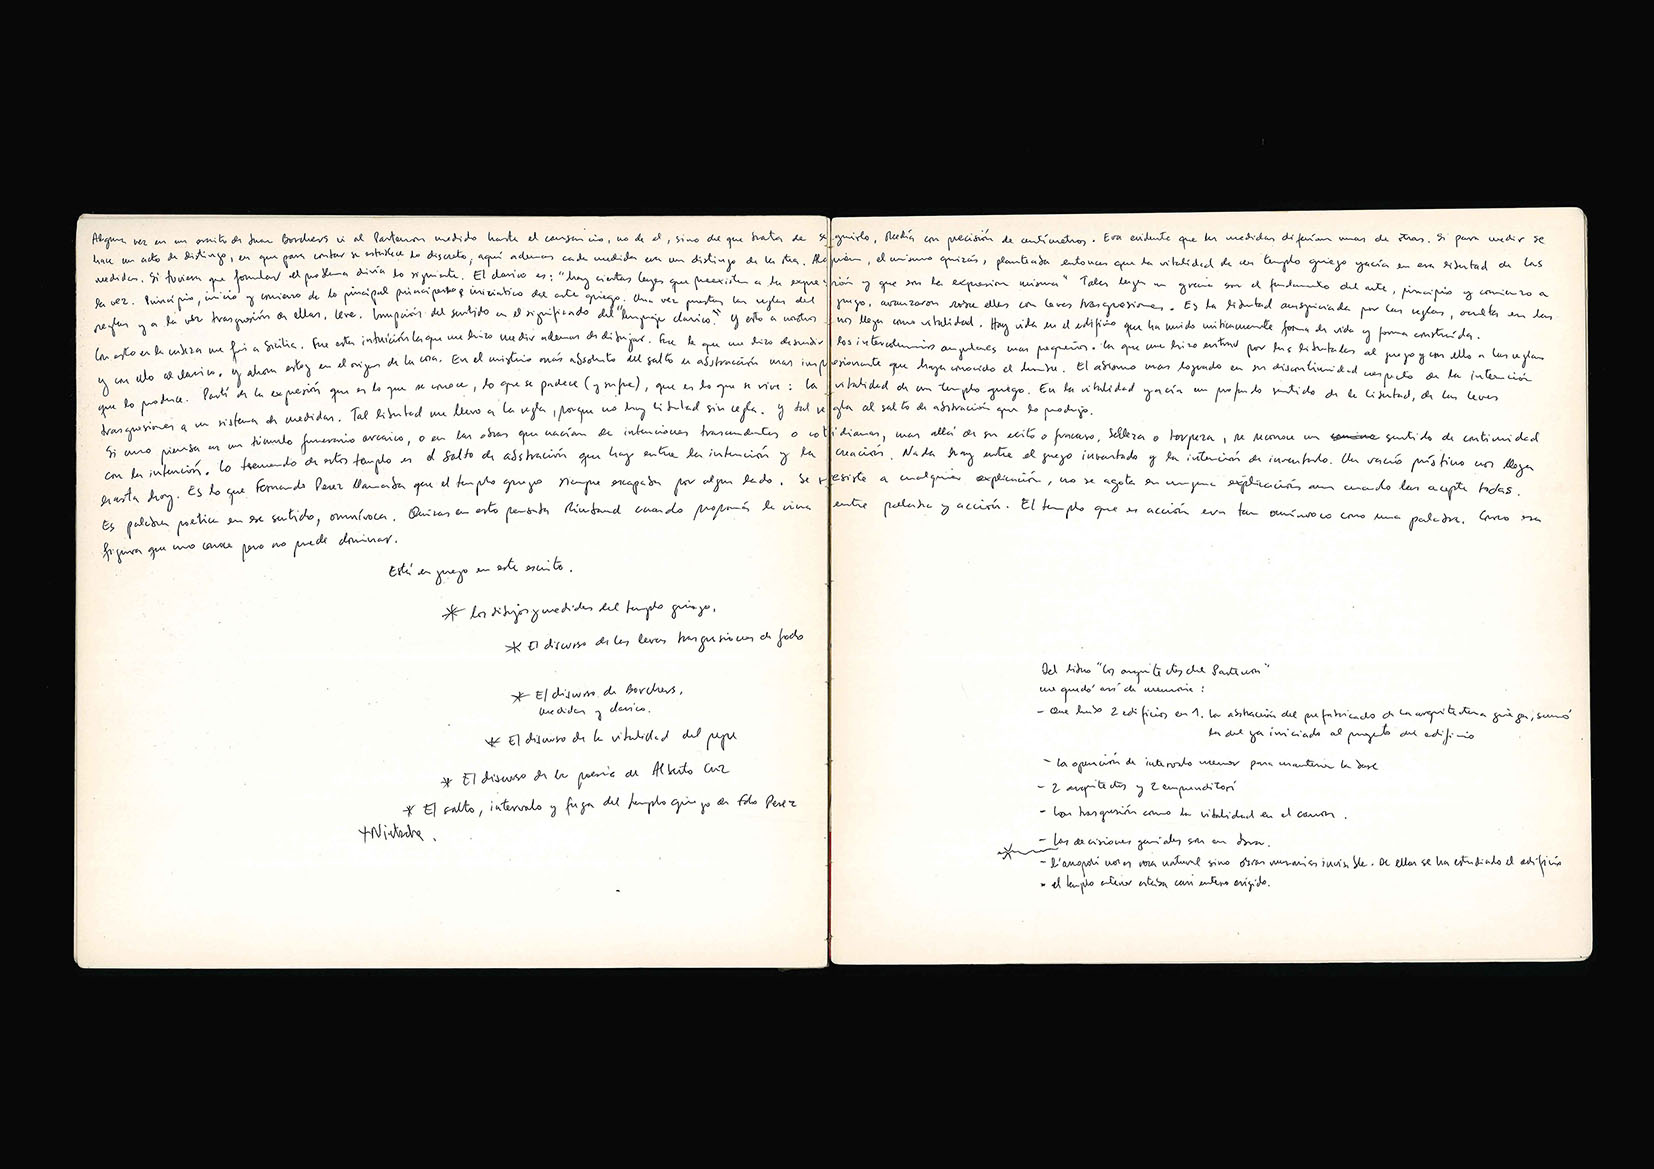 Alguna vez en un escrito de Juan Borchers vi al Partenon medido hasta el cansancio, no de el, sino del que trata de seguirlo, Medía con precisión de centímetros. Era evidente que las medidas diferían unas de otras. Si para medir se
hace un acto de distingo, en que para contar se establece lo discreto, aquí ademas cada medida era un distingo de la otra. Alguien, el mismo quizás, planteaba entonces que la vitalidad de un templo griego yacía en esa libertad de las
medidas. Si tuviera que formular el problema diría lo siguiente. El clasico es: "hay ciertas leyes que preexisten a la expresión y que son la expresion misma" Tales leyes en grecia son el fundamento del arte, principio y comienzo a
la vez. Principio, inicio y comienzo de lo principal e iniciatico del arte griego. Una vez puestas las reglas del juego, avanzaron sobre ellas con leves trasgresiones. Es la libertad auspiciada por las reglas, oculta en las
reglas y a la vez trasgresión de ellas, leve. Irrupción del sentido en el significado del "lenguaje clasico". Y esto a nosotros nos llega como vitalidad. Hay vida en el edificio que ha unido miticamente forma de vida y forma construida.
Con esto en la cabeza me fui a Sicilia. Fue esta intuición la que me hizo medir ademas de dibujar. Fue la que me hizo descubrir los intercolumnios angulares mas pequeños. La que me hizo entrar por las libertades al juego y con ello a las reglas
y con ello al clasico. Y ahora estoy en el origen de la cosa. En el misterio más absoluto del salto en abstracción mas impresionante que haya conocido el hombre. El abismo mas logrado en su discontinuidad respecto de la intención
que lo produce. Partí de la expresión que es lo que se conoce, lo que se padece (y sufre), que es lo que se vive: la vitalidad de un templo griego. En la vitalidad yacía un profundo sentido de la libertad, de las leves
trasgresiones a un sistema de medidas. Tal libertad me llevo a la regla, porque no hay libertad sin regla. Y tal regla al salto de abstracción que lo produjo.
Si uno piensa en un tumulo funerario arcaico, o en las obras que nacían de intenciones trascendentes o cotidianas, mas allá de su exito o fracaso, belleza o torpeza, se reconoce un sentido de continuidad
con la intención. Lo tremendo de estos templo es el salto de abstracción que hay entre la intención y la creación. Nada hay entre el juego inventado y la intención de inventarlo. Un vacío prístino nos llega
hasta hoy. Es lo que Fernando Perez llamaba que el templo griego siempre escapaba por algun lado. Se resiste a cualquier explicación, no se agota en ninguna explicación aun cuando las acepte todas.
Es palabra poetica en ese sentido, omnívoca. Quizas en esto pensaba Rimbaud cuando proponía la viva entre palabra y acción. El templo que es acción era tan omnívoco como una palabra. Como esa
figura que uno conoce pero no puede dominar.
Está en juego en este escrito.
* los dibujos y medidas del templo griego.
* El discurso de las leves trasgresiones de
* El discurso de Borchers,
medidas y clasico.
* El discurso de la vitalidad del pepe
* El discurso de la poesia de Alberto Cruz
* El salto, intervalo y fuga del templo griego de Fdo Perez
+Nietsche.
Del libro "los arquitectos del Partenon"
me quedó así de memoria:
- Que hubo 2 edificios en 1. La abstración del prefabricado de la arquitectura griega, sumó
la del ya iniciado al proyecto del edificio
- La operación de intervalo menor para mantener la base
- 2 arquitectos y 2 emprenditori
- Las trasgresión como la vitalidad en el canon.
- Las decisiones geniales son en obra.
- l'acropoli no es roca natural sino obras murarias invisible. De ellas se ha estudiado el edificio
- el templo anterior estaba casi entero erigido.